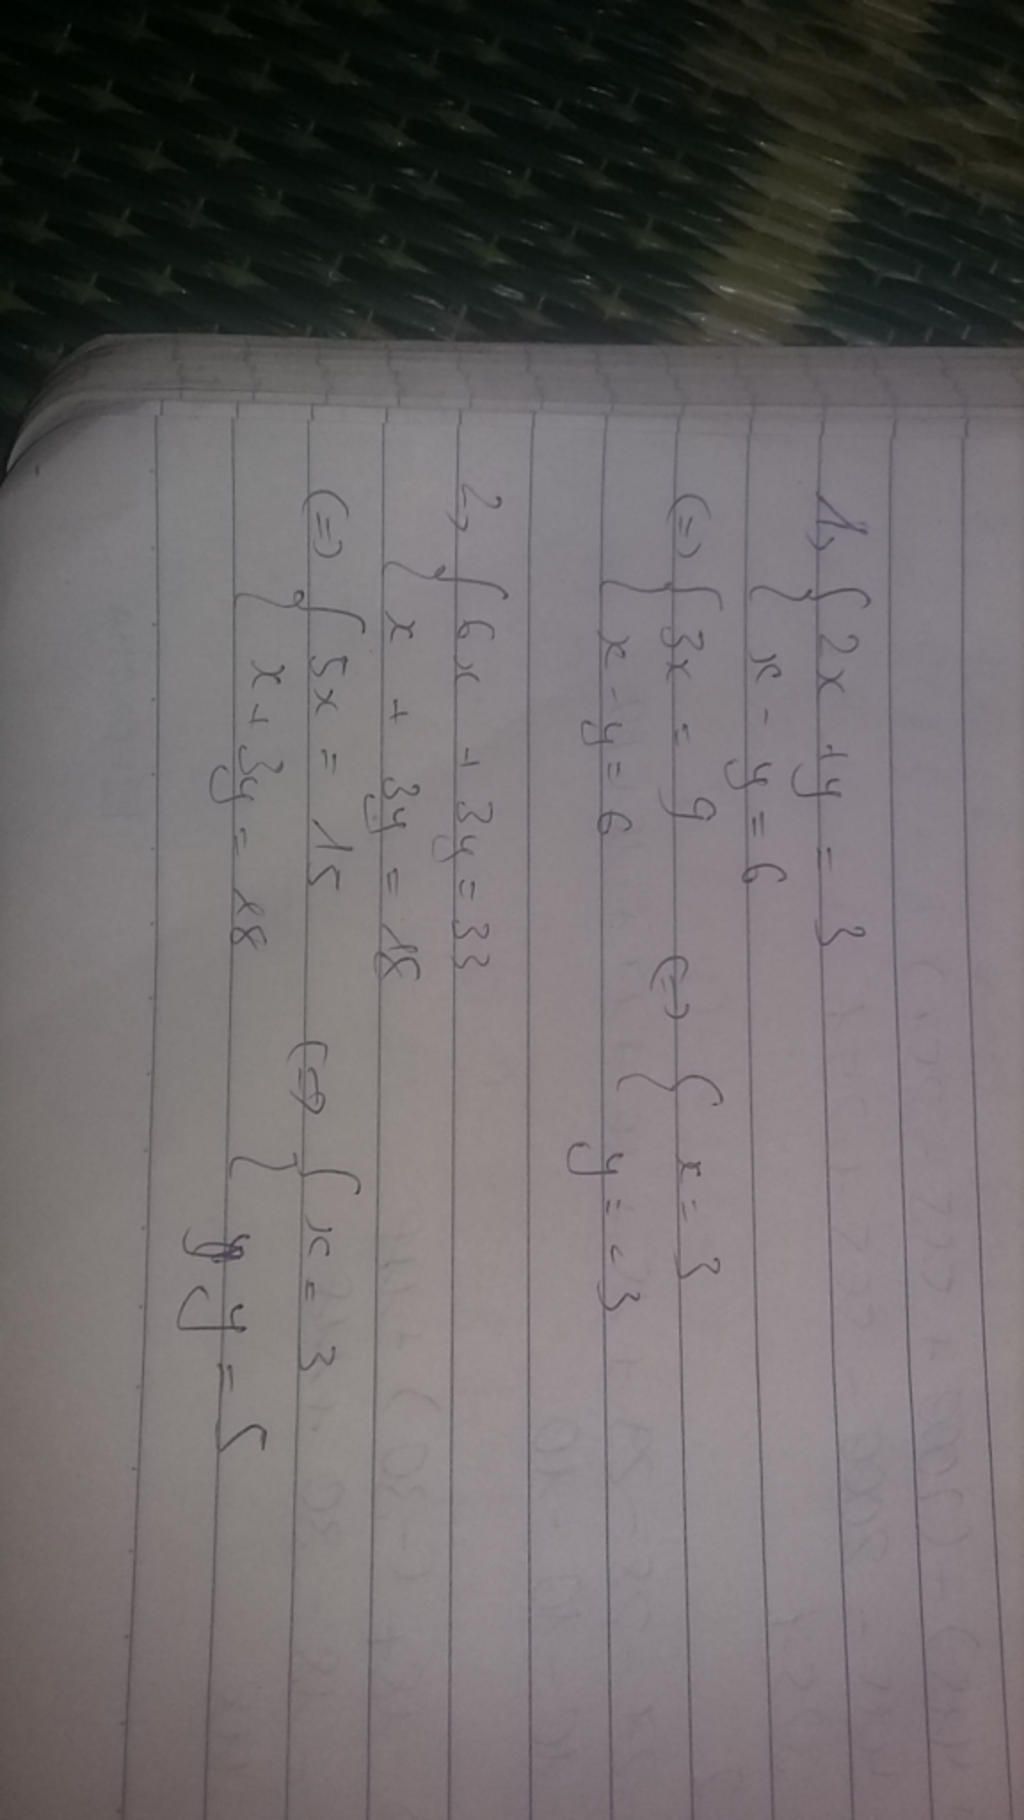 1, { 2x + y = 3
x - y = 6
(=) { 3x = 9 (=) { x = 3
x - y = 6 y = -3
2, { 6x + 3y = 33
x + 3y = 18
(=) { 5x = 15 (=) { x = 3
x + 3y = 18 y = 5